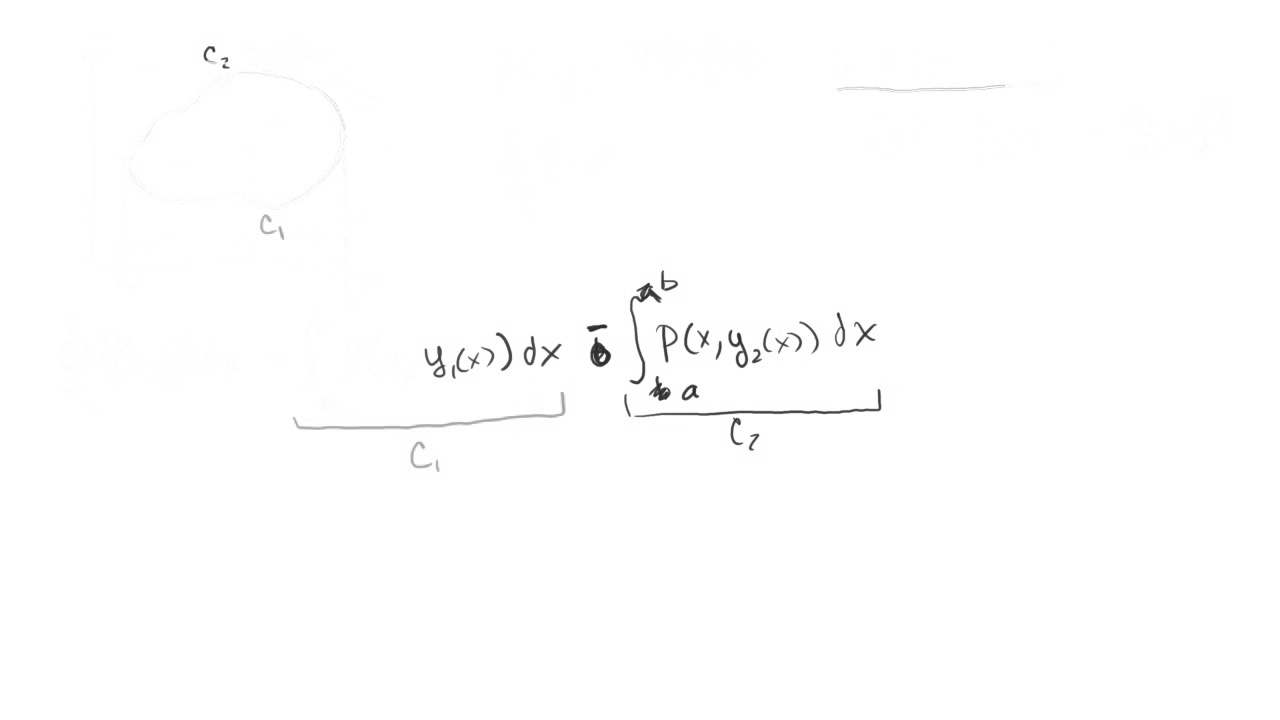 C₂
C₁
y₁(x)) dx - ∫ₐᵇ P(x, y₂(x)) dx
C₁
C₂